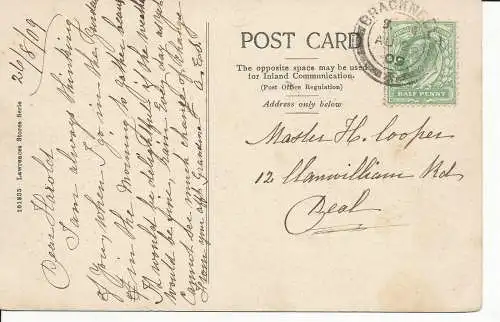 26/8/09
Dear Harold
I am always thinking
of you, when I go in the garden
& in the Morning to gather beans
It would be delightful if the weather
would be fine, rain every day as yet
Cannot see much chance of change
From your aff. Grandma A.
161835 Lawrences Stores Serie
POST CARD
The opposite space may be used
for Inland Communication.
(Post Office Regulation)
Address only below
BRACKNELL
AU
09
HALF PENNY
Master H. Cooper
12 Llanwilliam Rd
Deal